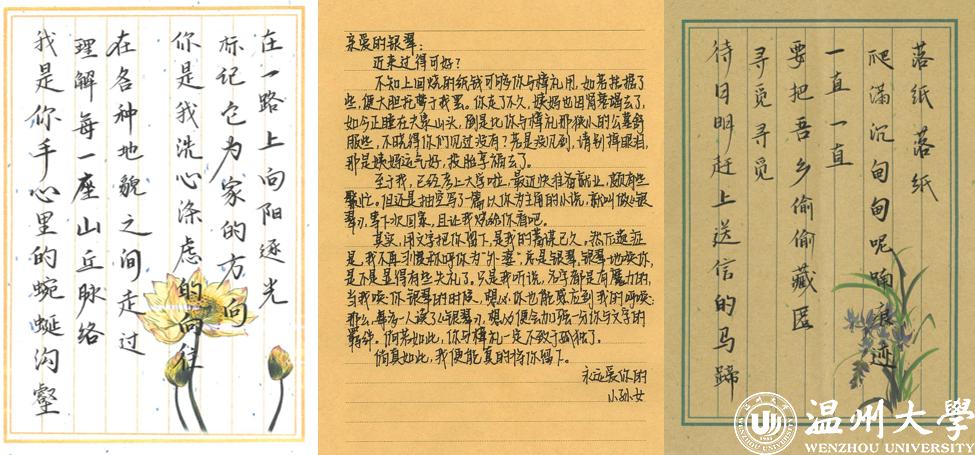 在一路上向阳逐光
标记它为家的方向
你是我洗心涤虑的向往
在各种地貌之间走过
理解每一座山丘脉络
我是你手心里的蜿蜒沟壑
亲爱的银翠：
近来过得可好？
不知上回烧的纸钱可够你与樟礼用，如若拮据了
些，便大胆托梦于我罢。你走了不久，姨妈也因肾衰竭去了，
如今正睡在大象山头，倒是比你与樟礼那狭小的公墓舒
服些，不晓得你们见过没有？若是没见到，请别掉眼泪，
那是姨妈运气好，投胎享福去了。
至于我，已经考上大学啦，最近快准备就业，颇有些
繁忙。但还是抽空写了篇以你为主角的小说，就叫做《银
翠》，等下次回家，且让我烧给你看吧。
其实，用文字把你留下，是我的蓄谋已久。然而
是，我不再习惯称呼你为“外婆”，总是银翠，银翠地唤你，
是不是显得有些失礼了。只是我听说，名字都是有魔力的，
当我唤你银翠的时候，想必你也能感应到我的呼唤；
那么，每多一人读了《银翠》，想必便会加强一分你与文字的
羁绊。倘若如此，你与樟礼一定不致于孤独了。
倘真如此，我便能真的将你留下。
永远爱你的
小孙女
落纸 落纸
爬满沉甸甸呢喃痕迹
一直 一直
要把吾乡偷偷藏匿
寻觅 寻觅
待日明赶上送信的马蹄
温州大学
WENZHOU UNIVERSITY